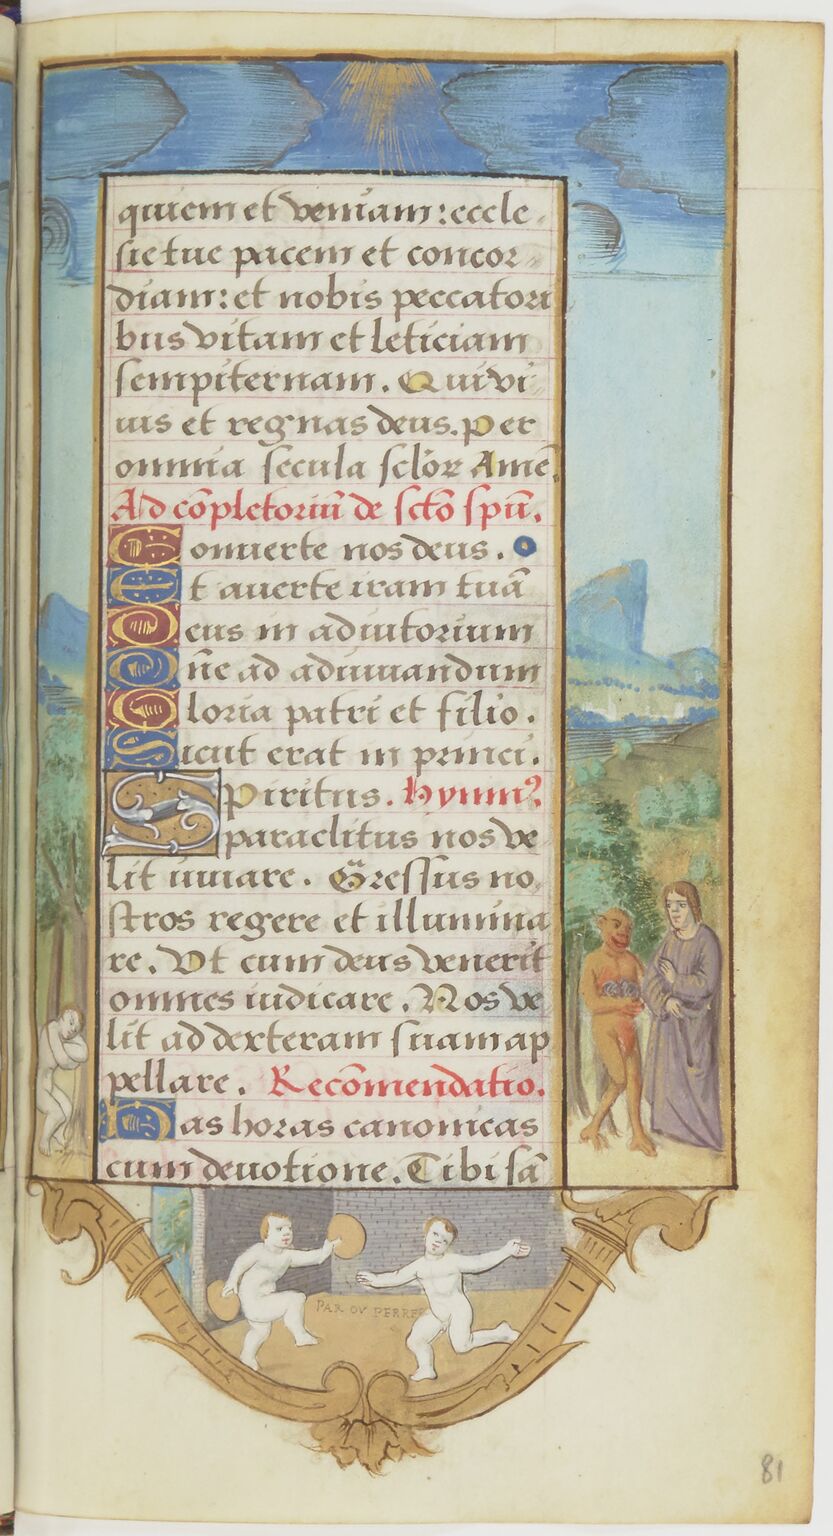 quiem et veniam: eccle
sie tue pacem et concor
diam: et nobis peccatori
bus vitam et leticiam
sempiternam. Qui vi
uis et regnas deus. Per
omnia secula sclōꝝ Amē.
Ad cōpletoriū de scto spū.
Conuerte nos deus.
Et auerte iram tuā
Deus in adiutorium
Dñe ad adiuuandum
Gloria patri et filio.
Sicut erat in princi.
Spiritus. Hymnꝰ
paraclitus nos ve
lit iuuare. Gressus no
stros regere et illumina
re. Vt cum deus venerit
omnes iudicare. Nos ve
lit ad dexteram suam ap
pellare. Recōmendatio.
Has horas canonicas
cum deuotione. Tibi sā
PAR OV PERRE
81